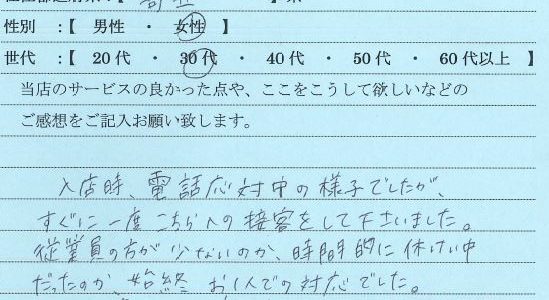 性別 :【 男性 ・ 女性 】
世代 :【 20代 ・ 30代 ・ 40代 ・ 50代 ・ 60代以上 】
当店のサービスの良かった点や、ここをこうして欲しいなどの
ご感想をご記入お願い致します。
入店時、電話応対中の様子でしたが、
すぐに一度こちらへの接客をして下さいました。
従業員の方が少ないのか、時間的に休けい中
だったのか、始終お1人での対応でした。